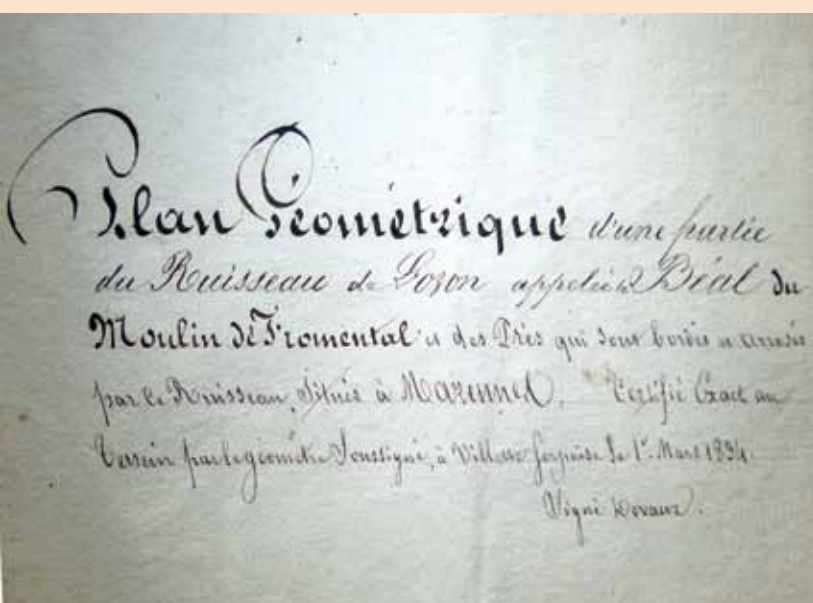 Plan Géométrique d'une partie
du Ruisseau de Gozon appelé le Béal du
Moulin de Fromental et des Prés qui sont bordés et arrosés
par ce Ruisseau, Situés à Marennes. Certifié Exact au
Terrein par le géomètre Soussigné, à Villette Serpaize le 1er Mars 1834.
Signé Devaux.